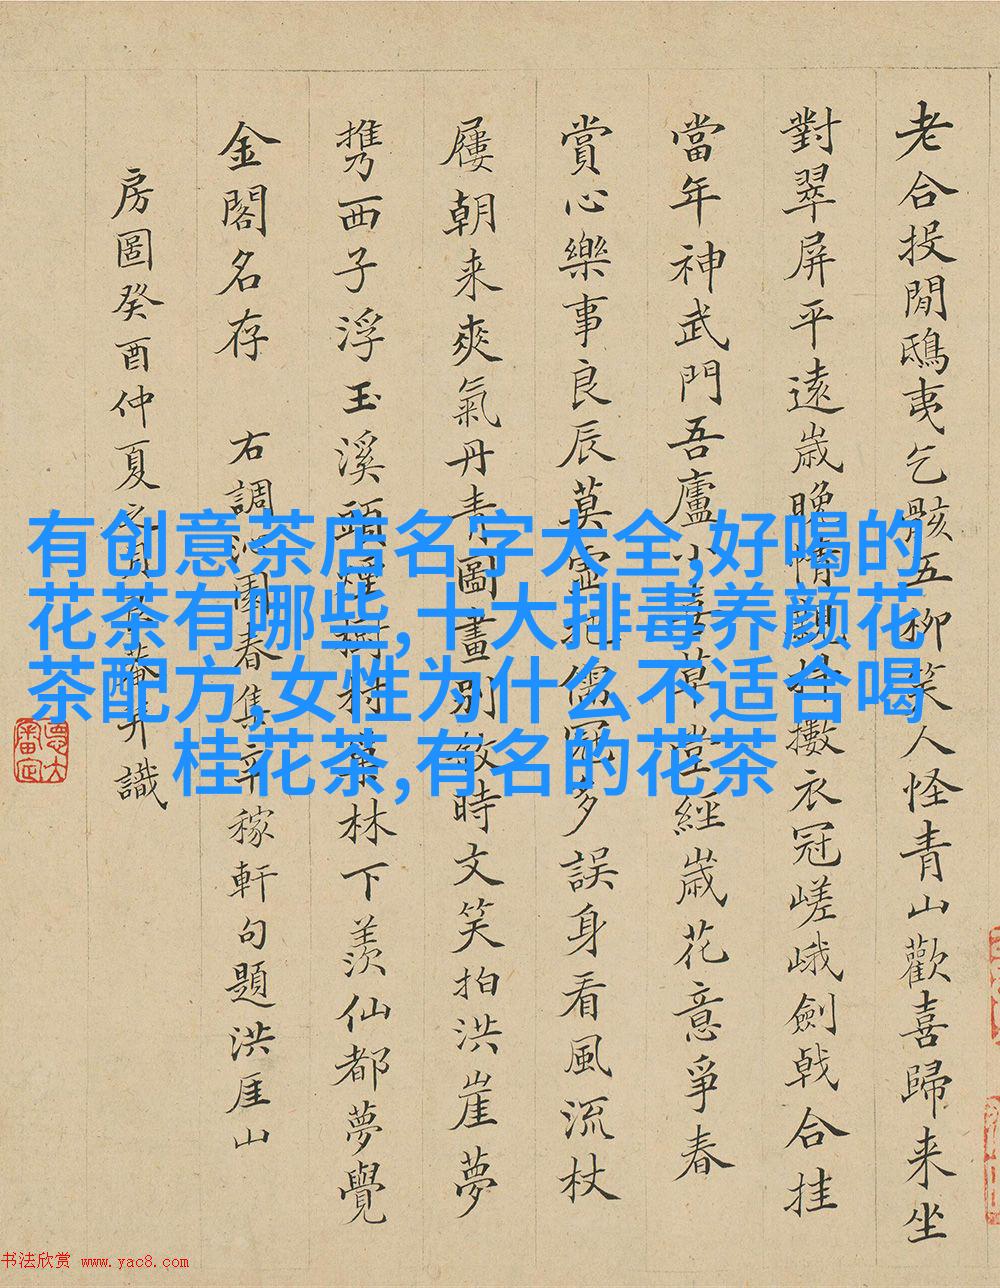 老合投閒鴟夷乞骸五柳笑人怪青山歡喜歸来坐
對翠屏平遠歲晚情親抖擻衣冠嵯峨劍戟合挂
當年神武門吾廬小草堂經歲花意爭春
賞心樂事良辰莫把儒冠多誤身看風流杖
屨朝来爽氣丹青圖畫別時文笑拍洪崖夢
携西子浮玉溪頭村林下羨仙都夢覺
金閣名存 右調沁園春集辛稼軒句題洪厓山
房圖癸酉仲夏弁識
有创意茶店名字大全,好喝的
花茶有哪些,十大排毒养颜花
茶配方,女性为什么不适合喝
桂花茶,有名的花茶
书法欣赏 www.yac8.com